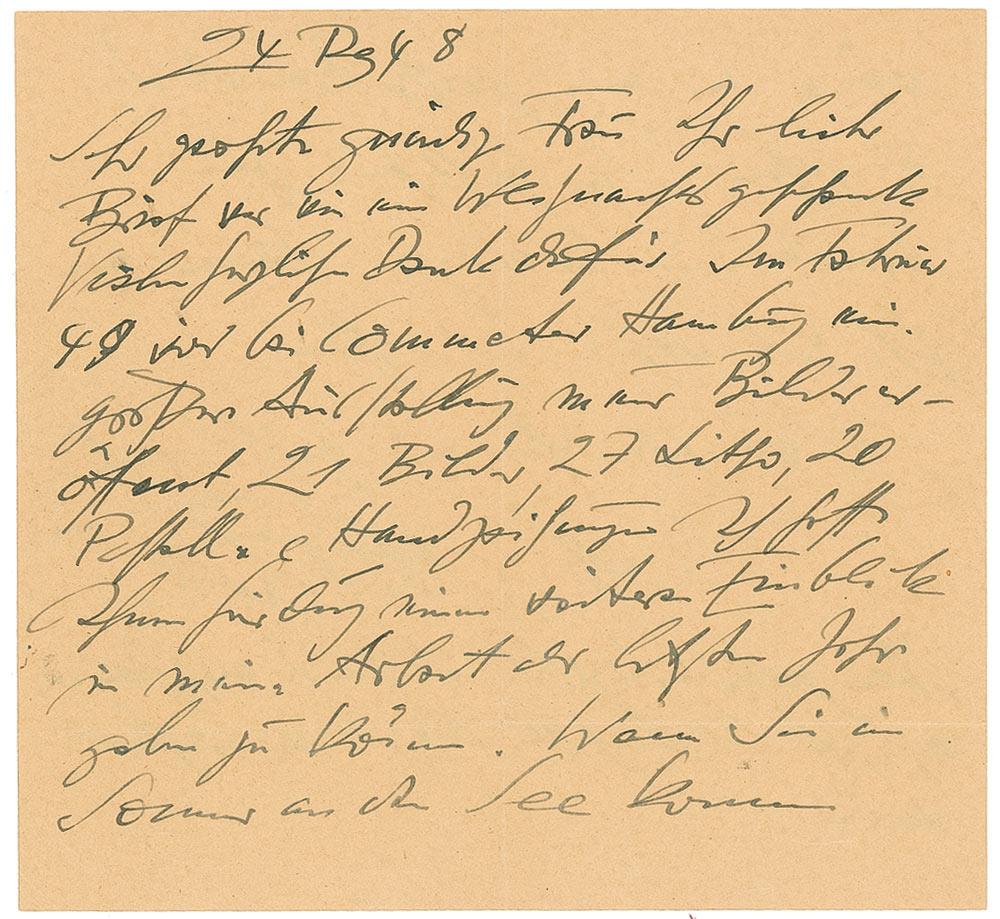 24 Dez 48
Sehr geehrte gnädige Frau Ihr lieber
Brief war mir ein Weihnachtsgeschenk
Vielen herzlichen Dank dafür Im Februar
49 wird bei Commeter Hamburg eine
größere Ausstellung meiner Bilder er-
öffnet, 21 Bilder, 27 Litho, 20
Pastelle Handzeichnungen Ich hoffe
Ihnen hierdurch einen weiteren Einblick
in meine Arbeit der letzten Jahre
geben zu können. Wenn Sie im
Sommer an den See kommen